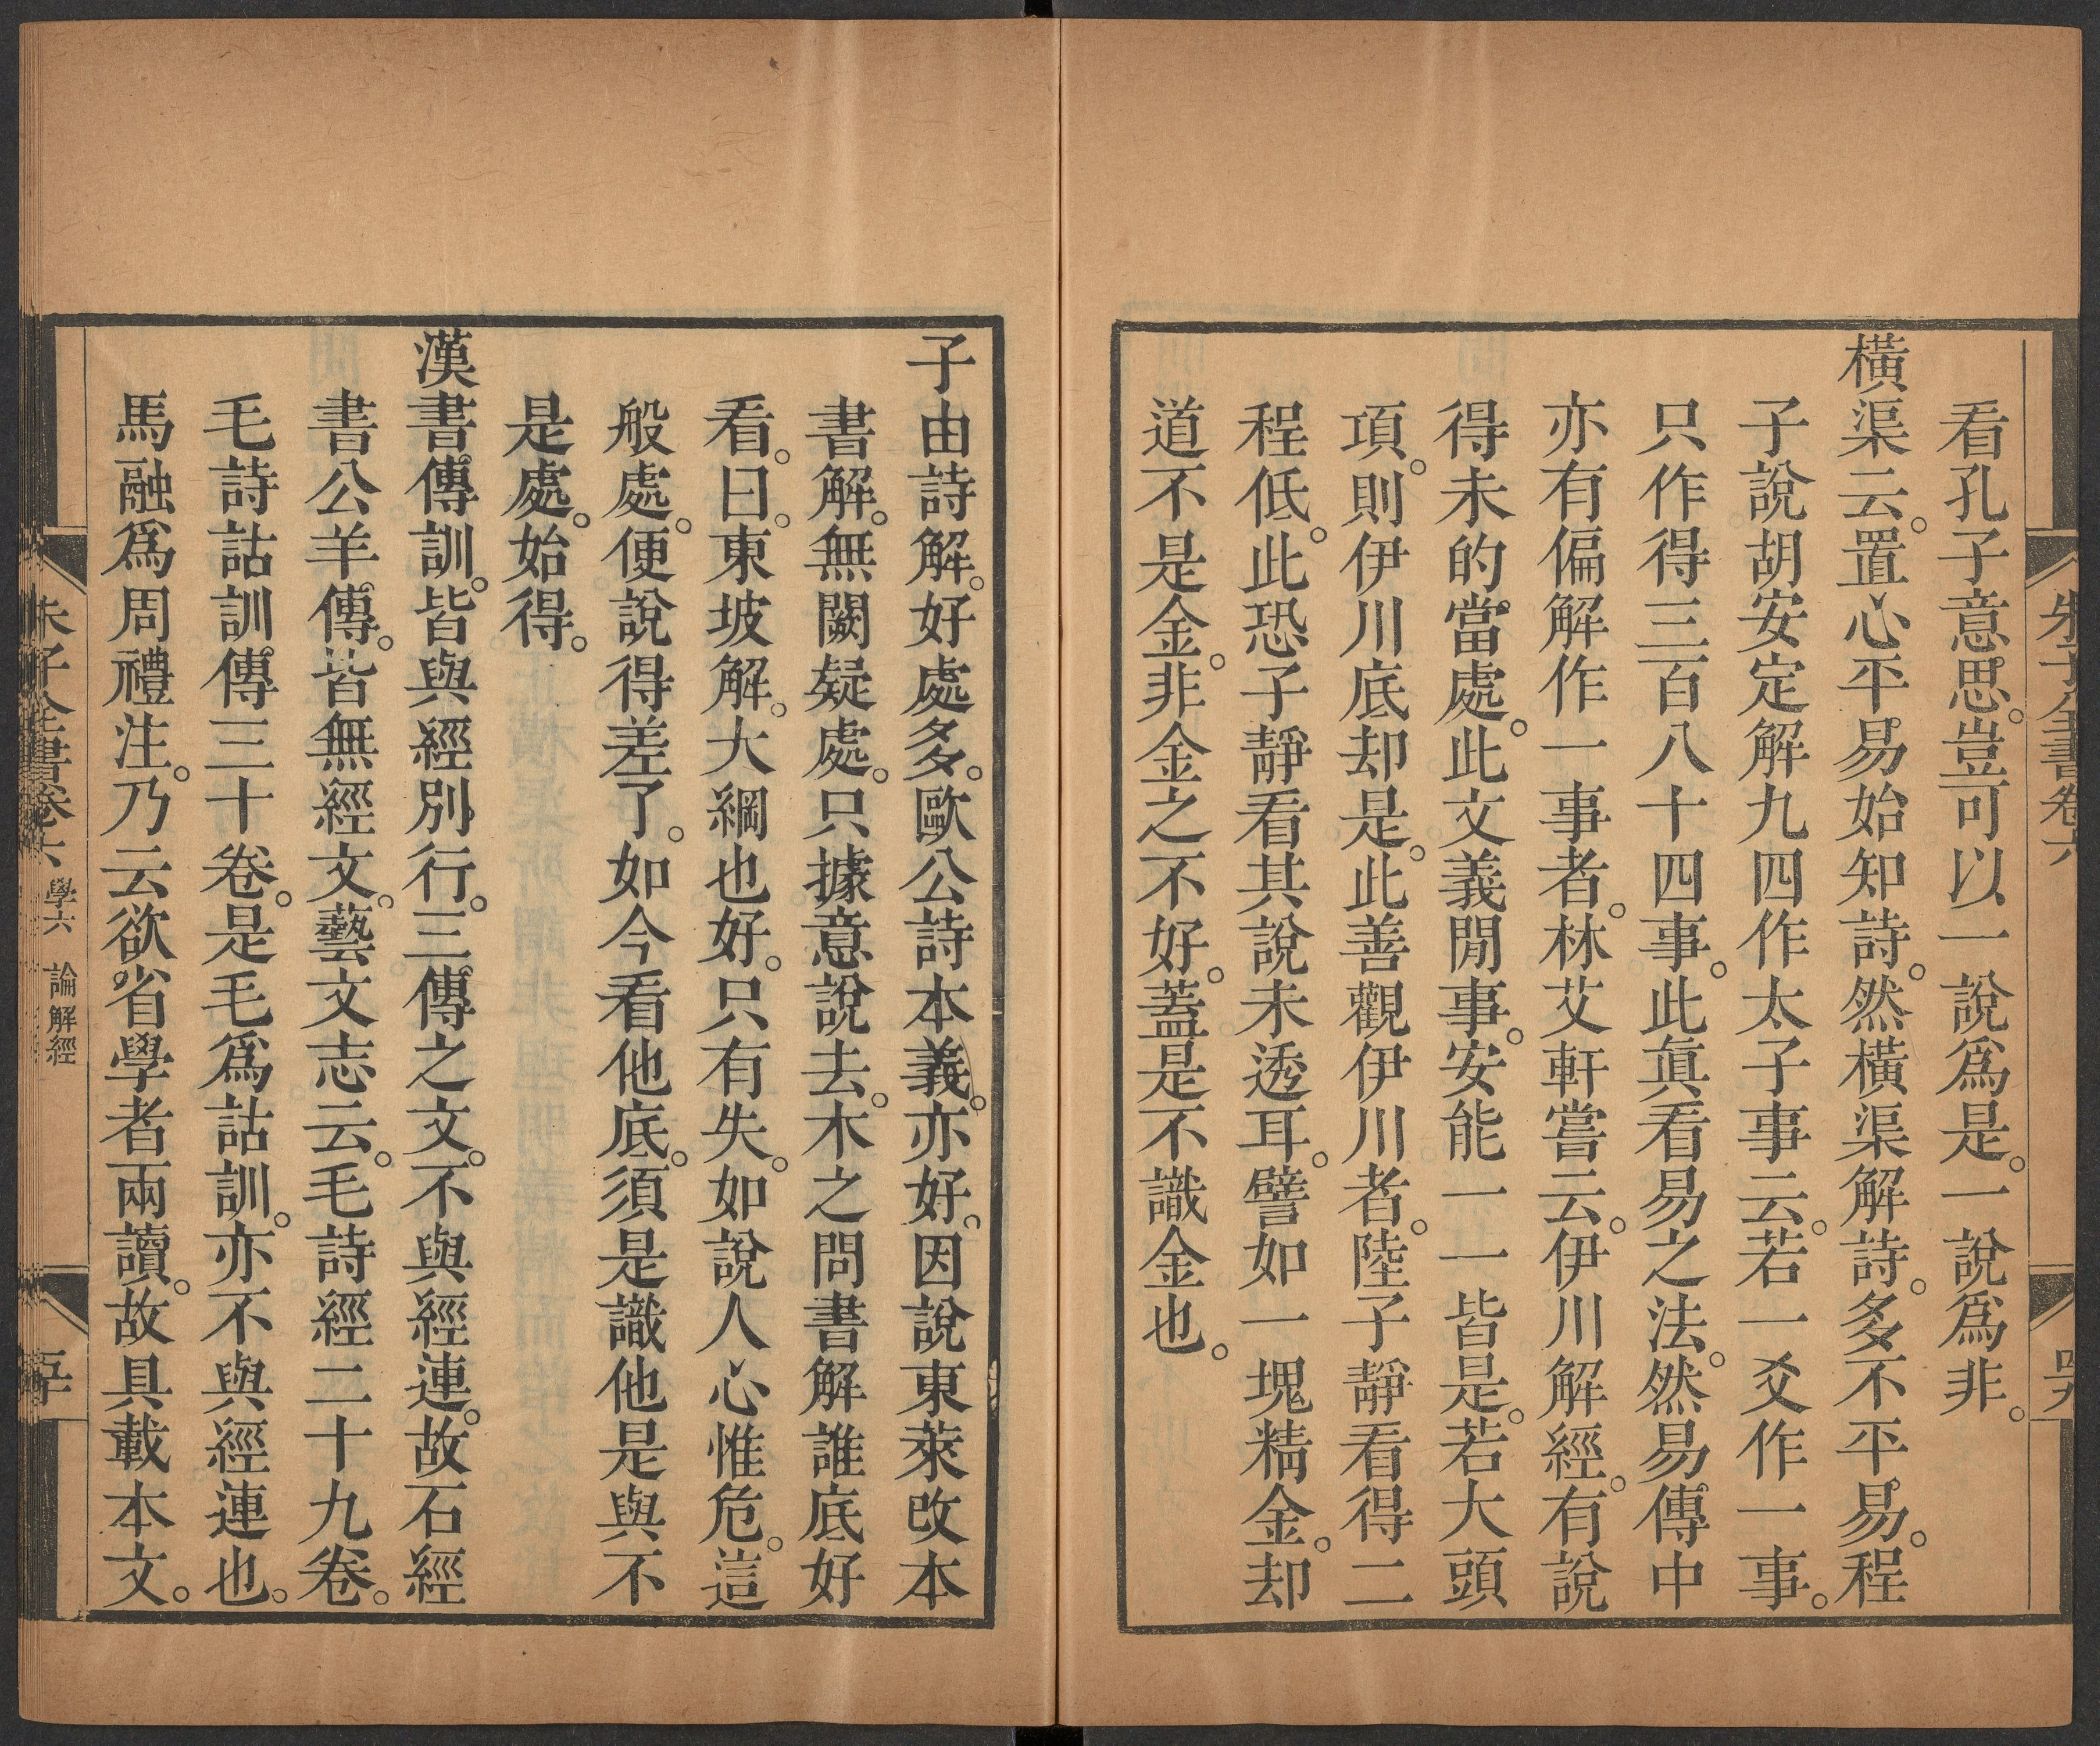 看孔子意思。豈可以一說爲是。一說爲非。
橫渠云。置心平易始知詩。然橫渠解詩。多不平易。程
子說胡安定解九四作太子事云。若一爻作一事。
只作得三百八十四事。此眞看易之法。然易傳中
亦有偏解作一事者。林艾軒嘗云。伊川解經。有說
得未的當處。此文義閒事。安能一一皆是。若大頭
項。則伊川底却是。此善觀伊川者。陸子靜看得二
程低。此恐子靜看其說未透耳。譬如一塊精金。却
道不是金。非金之不好。蓋是不識金也。
子由詩解。好處多。歐公詩本義。亦好。因說東萊改本
書解。無闕疑處。只據意說去。木之問書解誰底好
看。曰。東坡解。大綱也好。只有失。如說人心惟危。這
般處。便說得差了。如今看他底。須是識他是與不
是處。始得。
漢書傳訓。皆與經別行。三傳之文。不與經連。故石經
書公羊傳。皆無經文。藝文志云。毛詩經二十九卷。
毛詩詁訓傳三十卷。是毛爲詁訓。亦不與經連也。
馬融爲周禮注。乃云欲省學者兩讀。故具載本文。
朱子全書卷六 學六 論解經